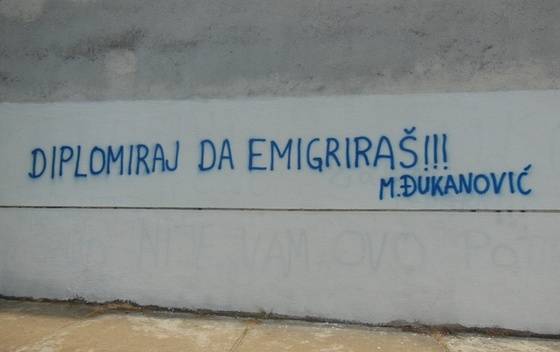 DIPLOMIRAJ DA EMIGRIRAŠ!!!
M.ĐUKANOVIĆ
VAM OVO